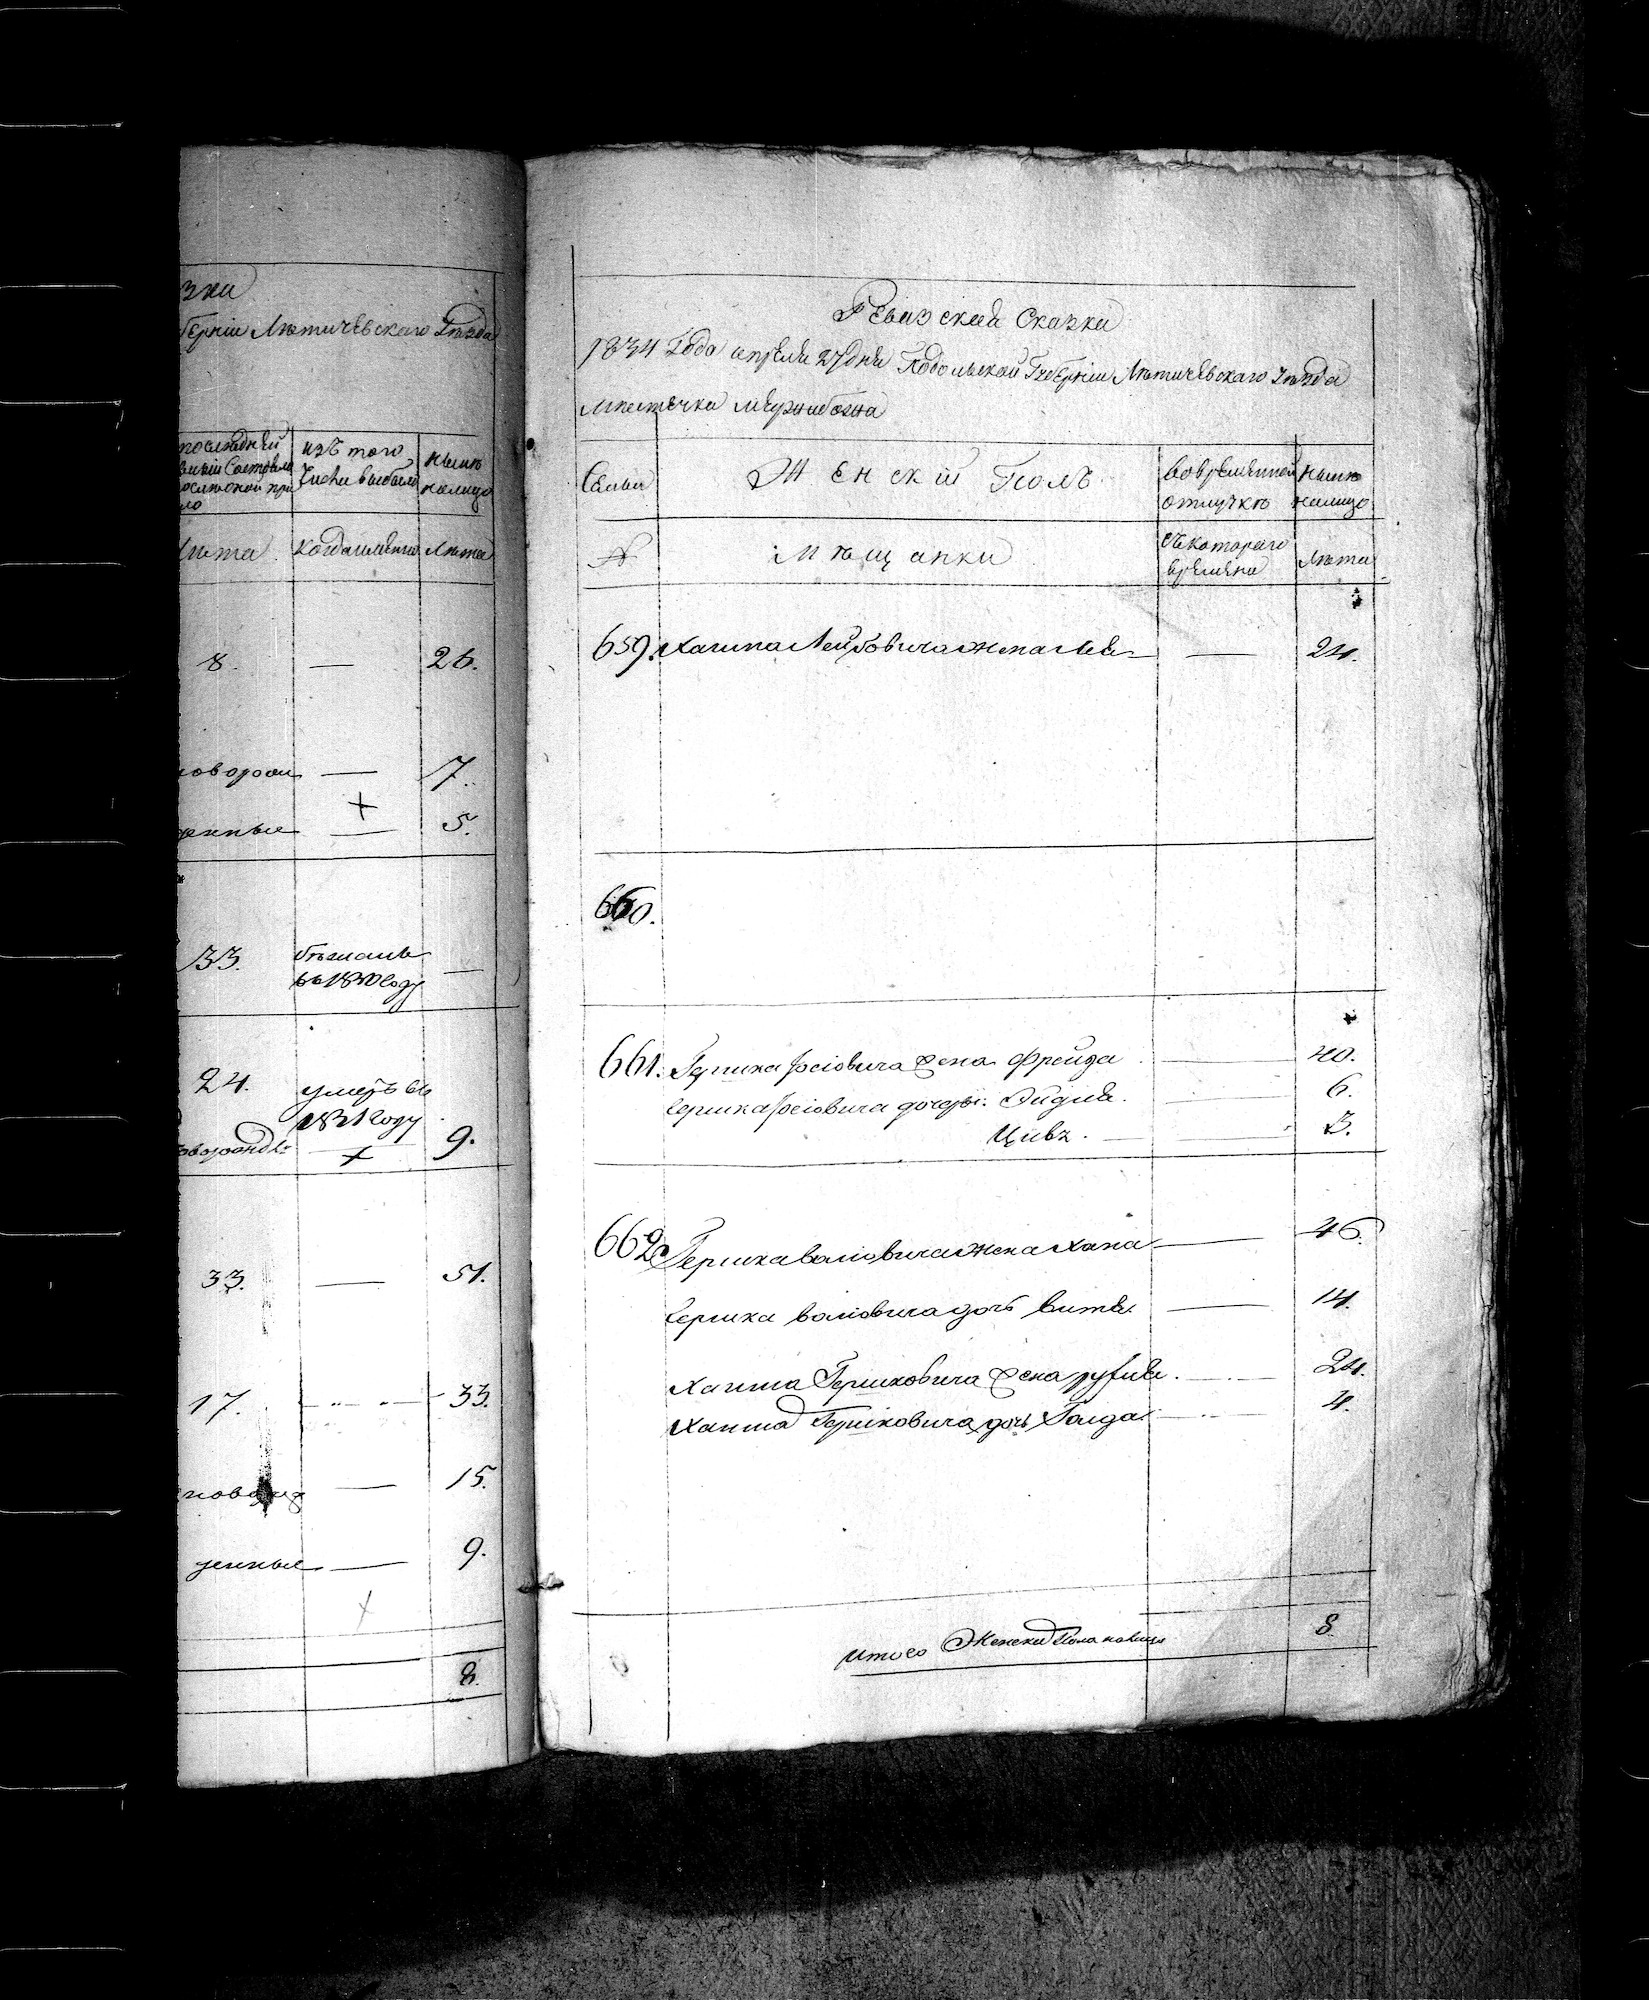 зки
берніи Летичевскаго Уезда
последней | изъ того | ныне
числа выбыло | налицо
лета | когда именно | Лета
8. — 26.
— 7.
денные — 5.
33. бежалъ
въ 1830 году —
24. умеръ въ
1831 году
9.
33. — 51.
17. — 33.
— 15.
денные — 9.
8.
Ревизская Сказка
1834 Года апреля 27 дня Подольской Губерніи Летичевскаго Уезда
Местечка Меджибожа
Семьи | Женскій Полъ | Вовременной отлучке | ныне налицо
№ | Мещанки | Съкотораго времени | Лета
659. Хаима Лейбовича жена — 24.
660.
661. Гершка Іосіовича жена Фрейда — 40.
Гершка Іосіовича дочери: Эйдля — 6.
Цивя. — 3.
662 Гершка Воліовича жена Хана — 46.
Гершка Воліовича дочь Витля — 14.
Хаима Гершковича жена Рухля. — 24.
Хаима Гершковича дочь Голда — 4.
Итого Женска Пола налицо 8